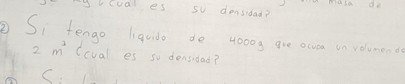 cual es su densidad?
masa de
② Si tengo liquido de 4000g que ocupa un volumen de
2 m³ ¿cual es su densidad?
Si